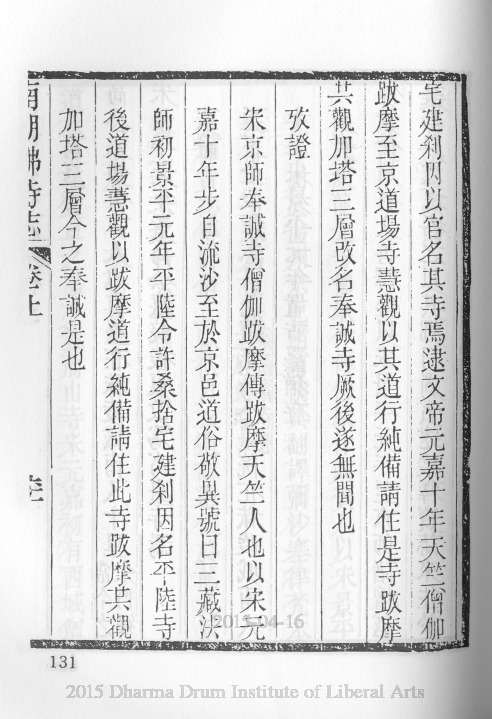 宅建刹因以官名其寺焉逮文帝元嘉十年天竺僧伽
跋摩至京道場寺慧觀以其道行純備請住是寺跋摩
共觀加塔三層改名奉誠寺厥後遂無聞也
攷證
宋京師奉誠寺僧伽跋摩傳跋摩天竺人也以宋元
嘉十年步自流沙至於京邑道俗敬異號曰三藏法
師初景平元年平陸令許桑捨宅建刹因名平陸寺
後道場慧觀以跋摩道行純備請住此寺跋摩共觀
加塔三層今之奉誠是也
南朝佛寺志 卷上
131
2015-04-16
2015 Dharma Drum Institute of Liberal Arts